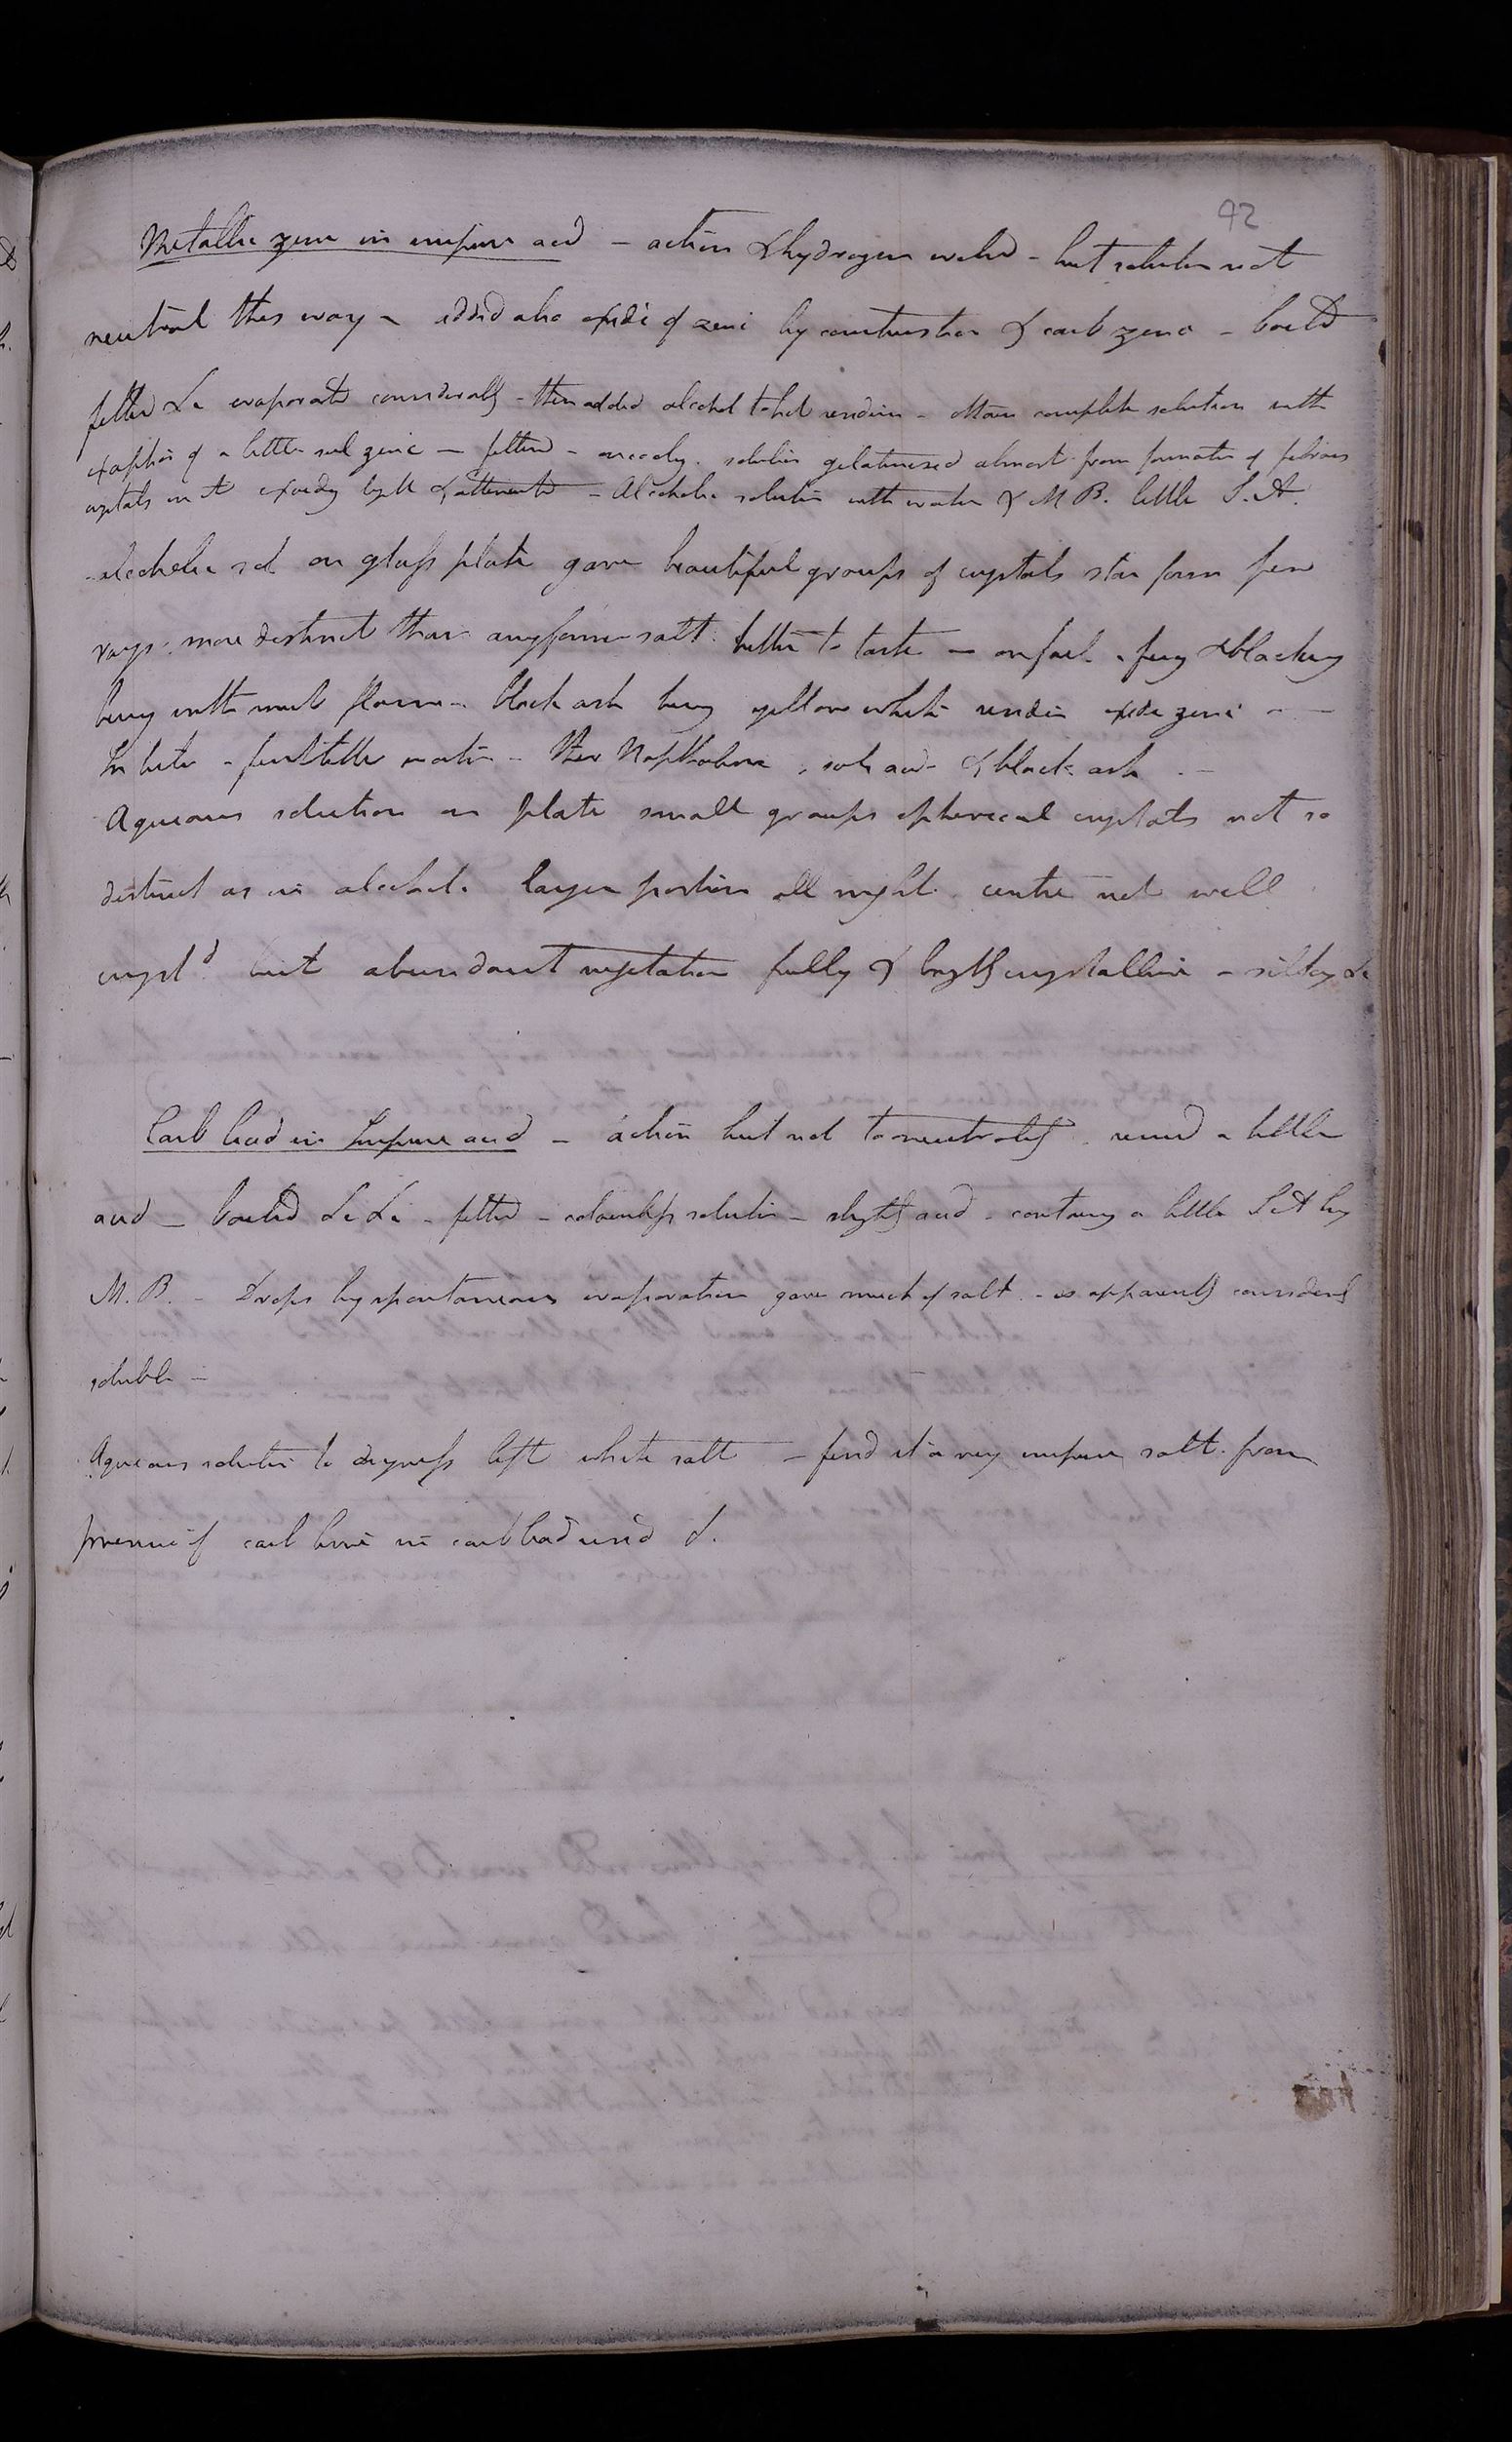 92
Metallic zinc in impure acid – action & hydrogen evolvd – but solution not
neutral this way – added also oxide of zinc by combustion & carb zinc – boild
filterd &c evaporated considerably – then added alcohol to hot residue – obtain complete solution with
exception of a little sul zinc – filterd – on cooling solution gelatinised almost from formation of fibrous
crystals in it exceedy light & attenuated – Alcoholic solution with water & M B. little S. A.
alcoholic sol on glass plate gave beautiful groups of crystals star form few
rays. more distinct than any former salt. bitter to taste – on foil fusing & blackening
burng with much flame – black ash burng yellow white residue oxide zinc –
In tube – first little water – then Napthaline, sul acid & black ash –
Aqueous solution on plate small groups spherical crystals not so
distinct as in alcohol. larger portion all night. centre not well
crystd but abundant vegetation fully & brightly crystalline – silky &c
Carb lead in Impure acid – action but not to neutrality. removd a little
acid – boild &c &c – filterd – colourless solution – slightly acid – containing a little S A by
M. B. – Drops by spontaneous evaporation gave much of salt – is apparently considerably
soluble –
Aqueous solution to dryness left white salt – find it a very impure salt from
presence of carb lime in carb lead used &.